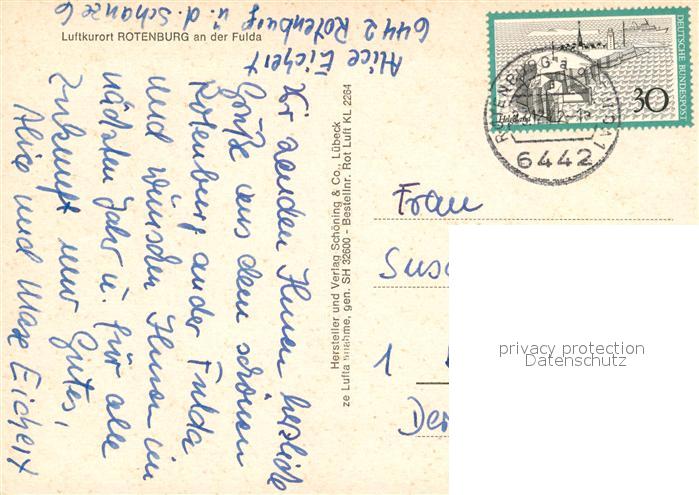 Luftkurort ROTENBURG an der Fulda
Alice Eichert
6442 Rotenburg ü. d. Schanze 6
Wir senden Ihnen herzliche
Grüße aus dem schönen
Rotenburg an der Fulda
und wünschen Ihnen im
nächsten Jahr u. für alle
Zukunft nur Gutes,
Alice und Max Eichert
Hersteller und Verlag Schöning & Co., Lübeck
ze Lufta nnahme, gen. SH 32600 - Bestellnr. Rot Luft KL 2264
DEUTSCHE BUNDESPOST
30
Helgoland
6442
Frau
Sus
1
Der
privacy protection
Datenschutz